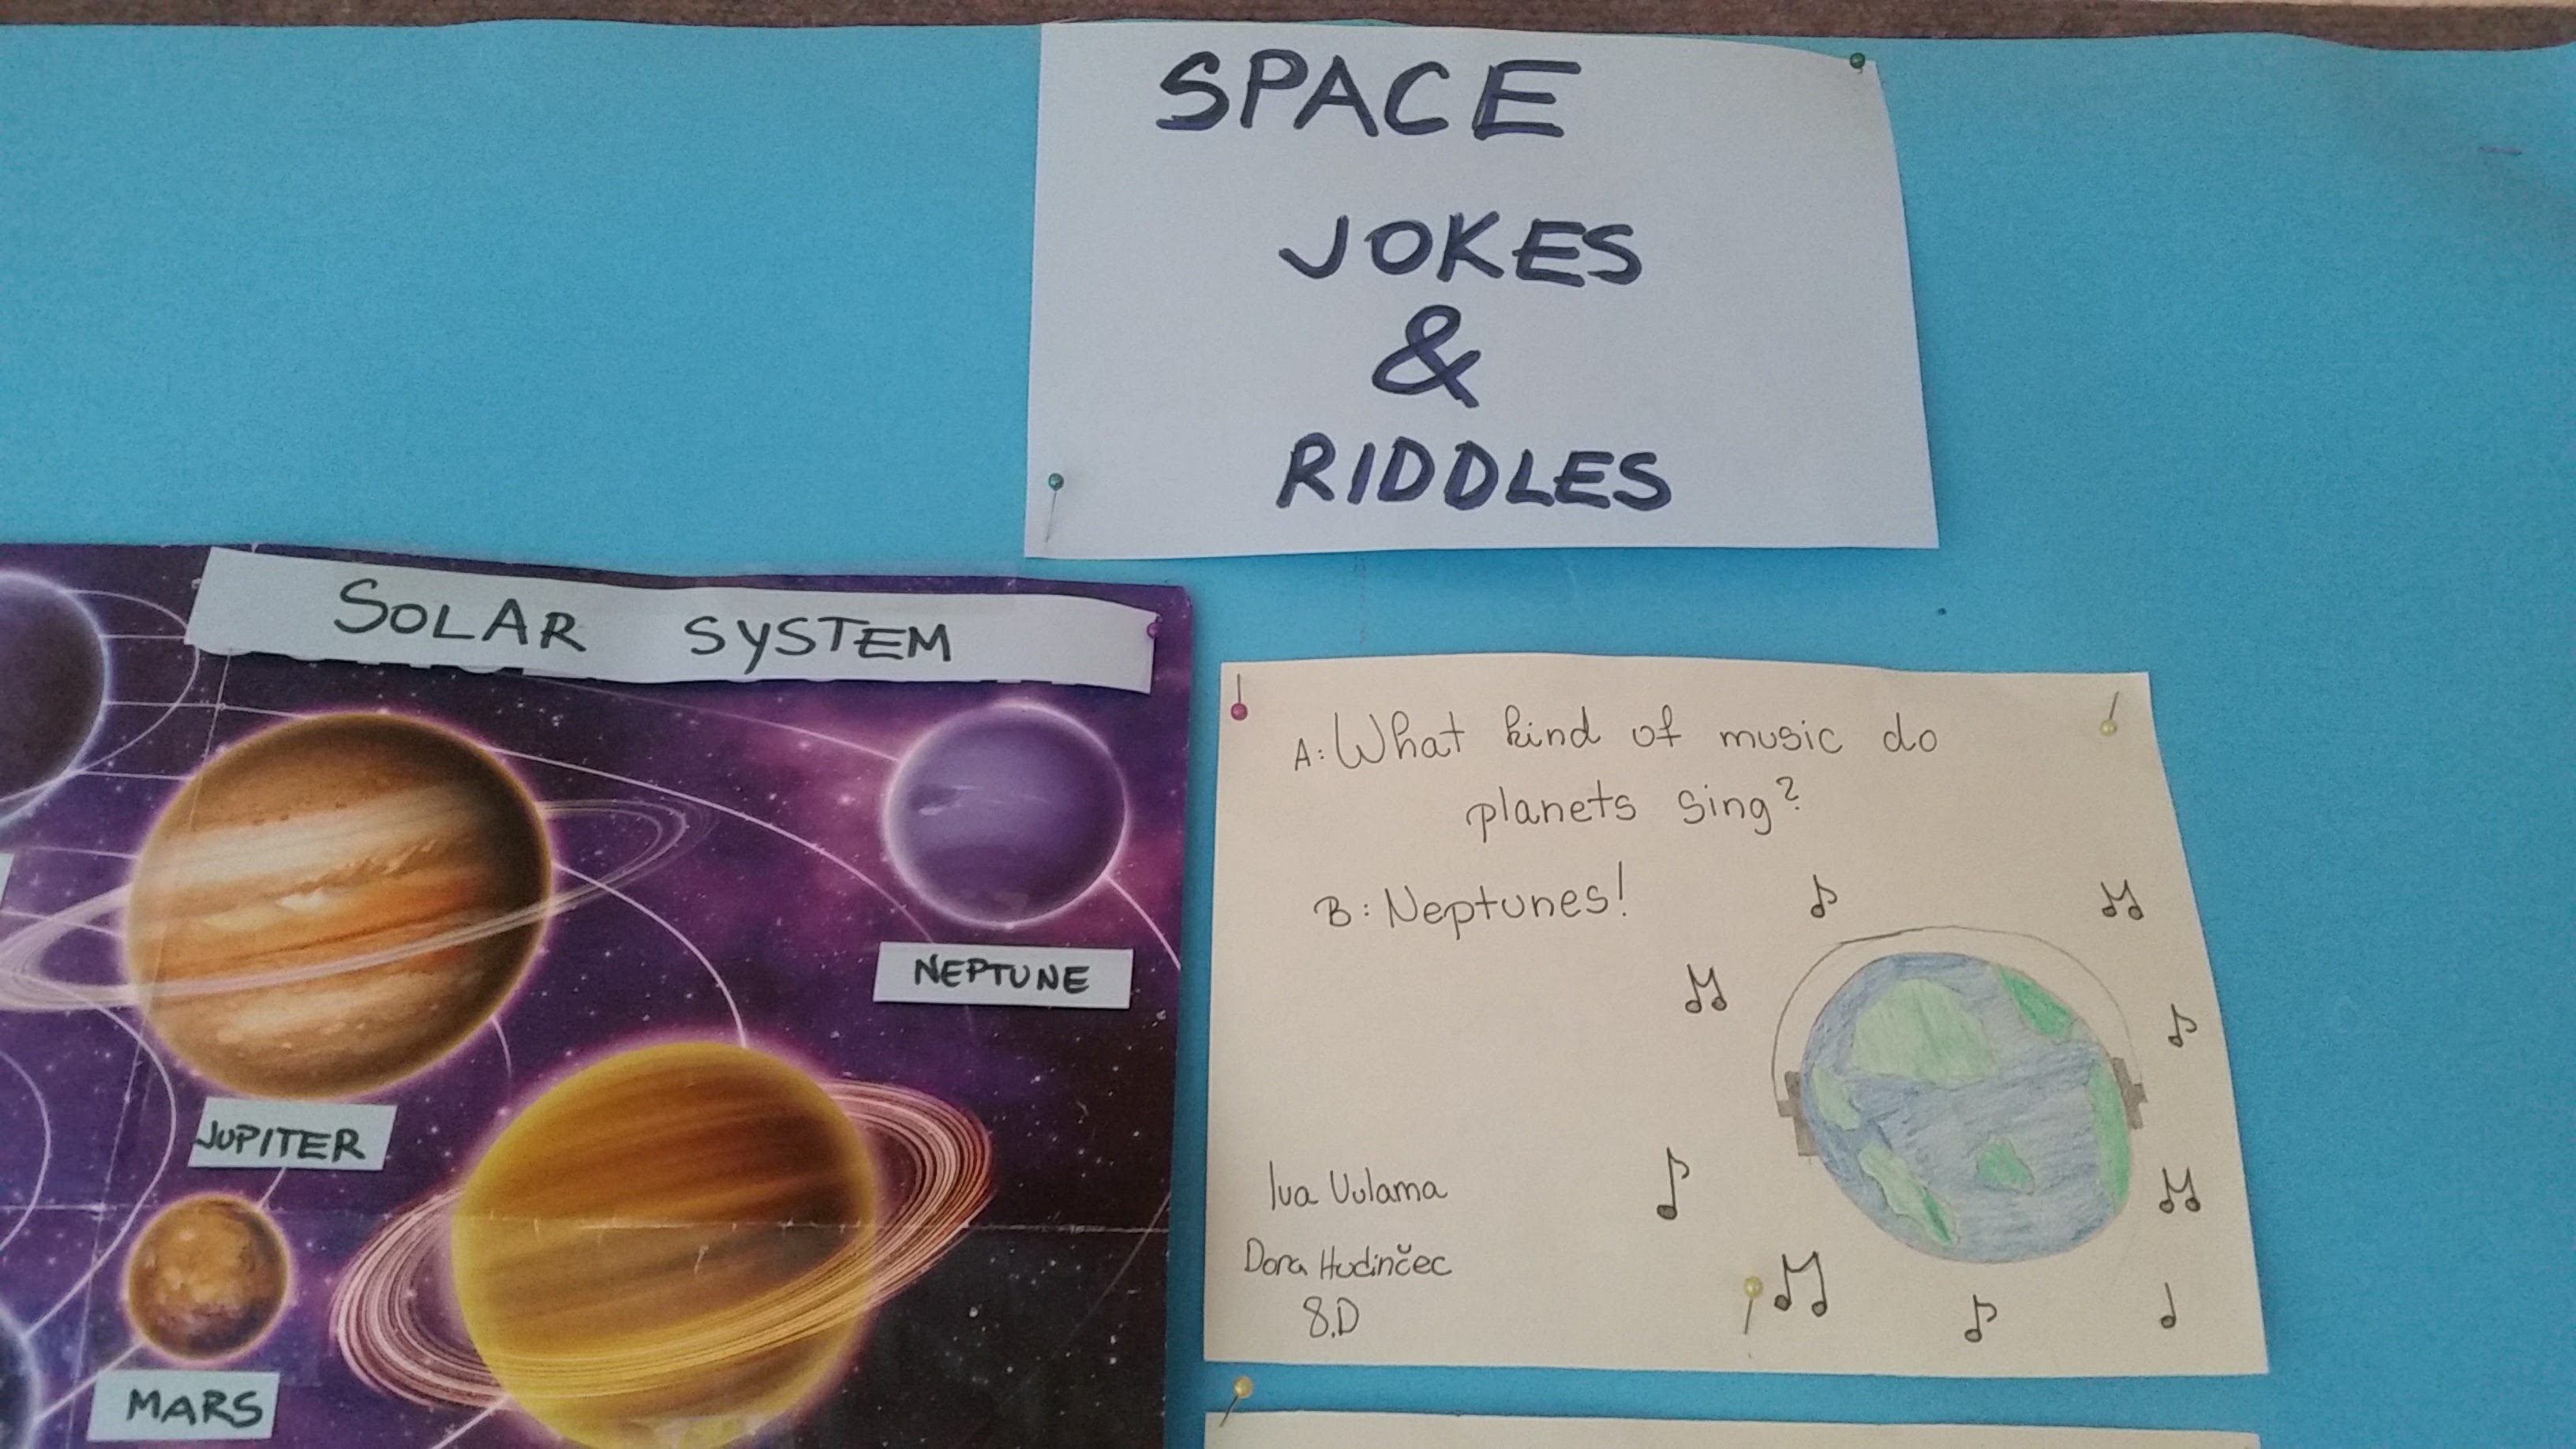 SPACE
JOKES
&
RIDDLES
SOLAR SYSTEM
NEPTUNE
JUPITER
MARS
A: What kind of music do
planets sing?
B: Neptunes!
Iva Vulama
Dora Hudinčec
8.D